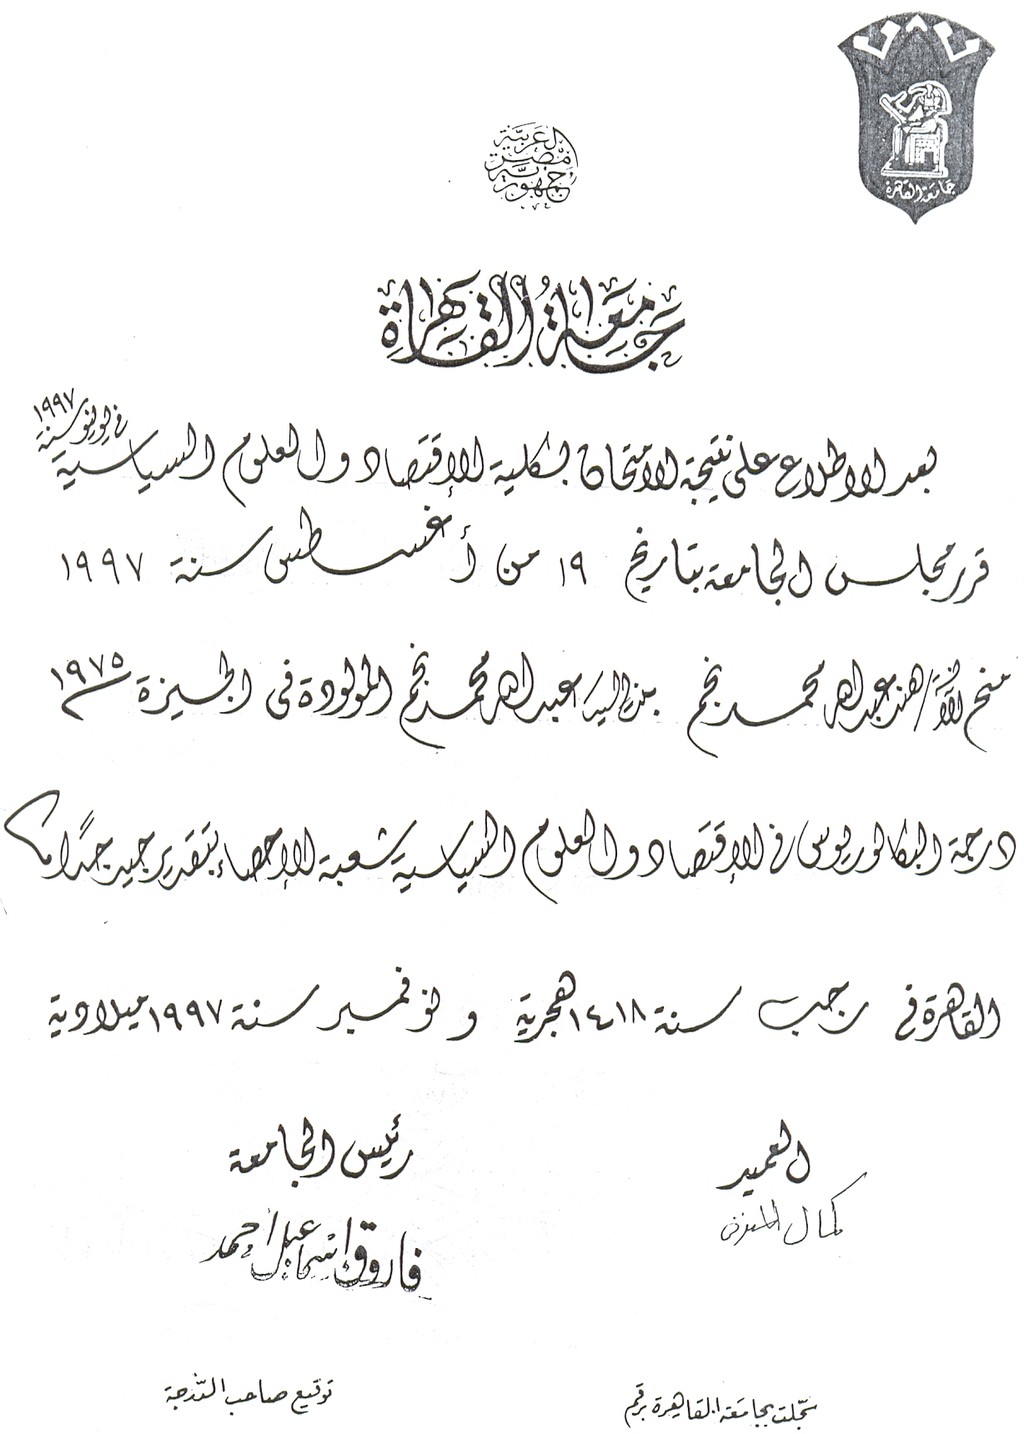 جامعة القاهرة
جمهورية مصر العربية
جامعة القاهرة
بعد الاطلاع على نتيجة الامتحان بكلية الإقتصاد والعلوم السياسية في يونيو سنة ١٩٩٧
قرر مجلس الجامعة بتاريخ ١٩ من أغسطس سنة ١٩٩٧
منح الآنسة/ هند عبدالله محمد نجم بنت السيد عبدالله محمد نجم المولودة في الجيزة ١٩٧٥
درجة البكالوريوس في الإقتصاد والعلوم السياسية شعبة الإحصاء بتقدير جيد جدًا
القاهرة في رجب سنة ١٤١٨ هجرية و نوفمبر سنة ١٩٩٧ ميلادية
العميد رئيس الجامعة
كمال فاروق إسماعيل أحمد
سجلت بجامعة القاهرة برقم توقيع صاحب الدرجة